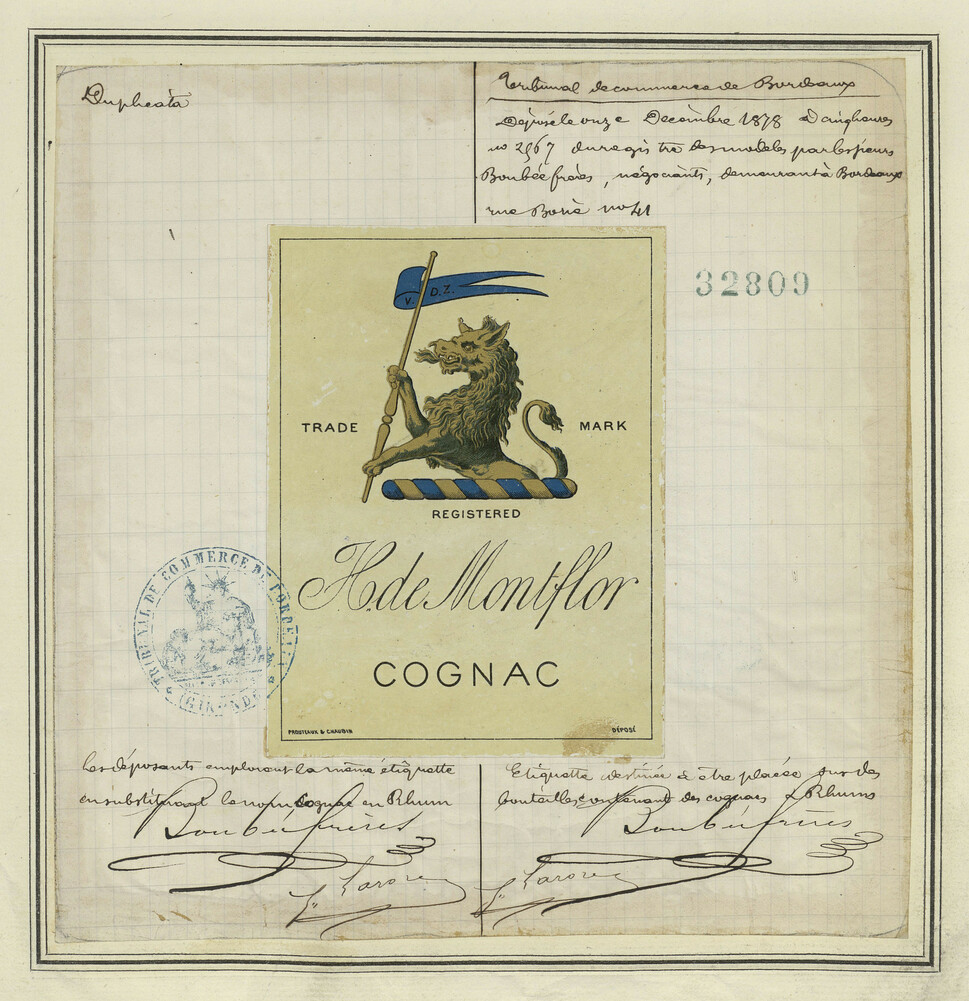 Duplicata
Tribunal de commerce de Bordeaux
Déposé le onze Décembre 1878 à cinq heures
no 2967 du registre des modèles par les sieurs
Boubée frères, négociants, demeurant à Bordeaux
rue Borie no 41
32809
V. D.Z.
TRADE MARK
REGISTERED
H. de Montflor
COGNAC
PROSTEAUX & CHAUBIN
DÉPOSÉ
TRIBUNAL DE COMMERCE DE BORDEAUX
GIRONDE
Les déposants emploient la même étiquette
en substituant le nom Cognac en Rhum
Boubée frères
Etiquette destinée à être placée sur des
bouteilles contenant des cognacs & Rhums
Boubée frères